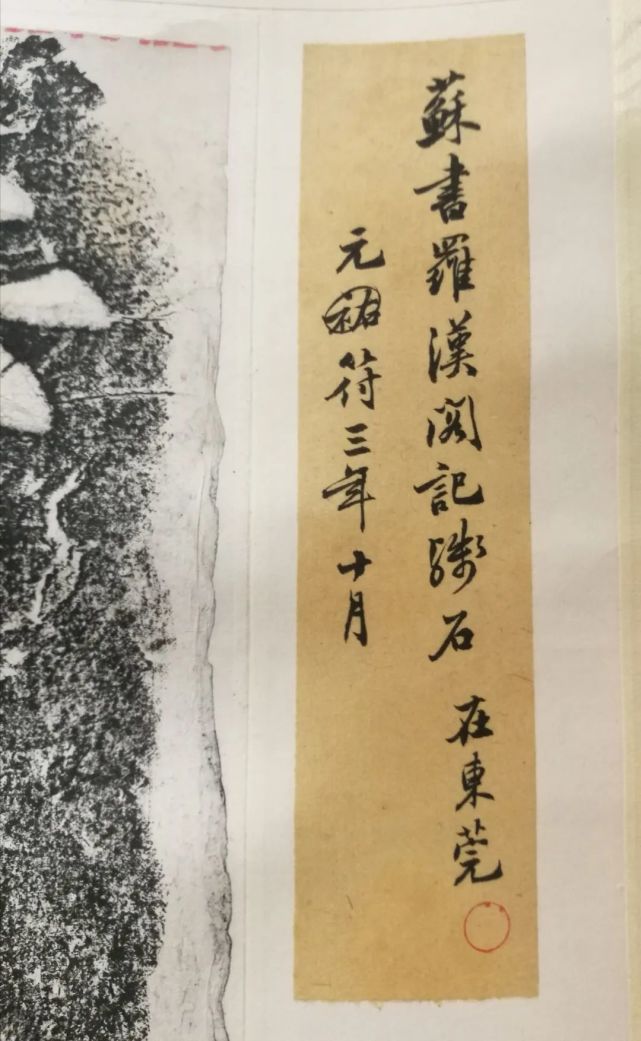 蘇書羅漢閣記殘石 在東莞
元祐符三年十月